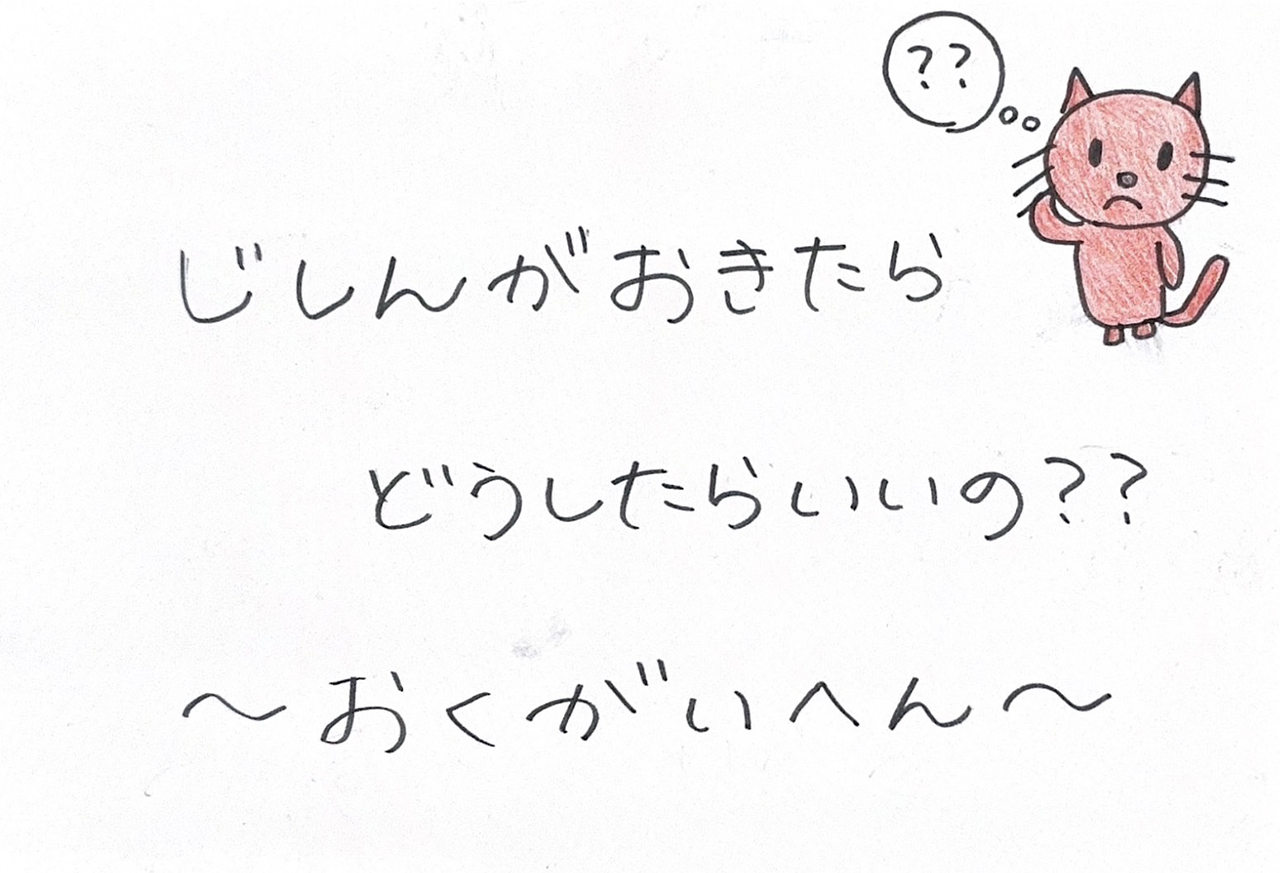 ??
じしんがおきたら
どうしたらいいの??
～おくがいへん～